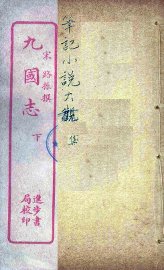 筆記小説大觀 集
宋 路振撰
九國志
下
進步書
局校印